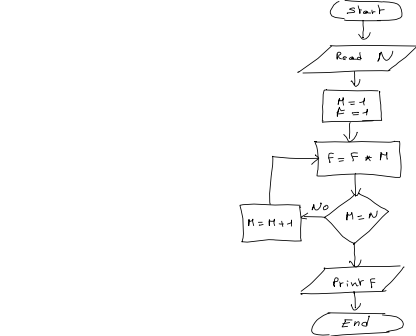 Start
Read N
M=1
F=1
F=F * M
M=N
No
M=M+1
Print F
End